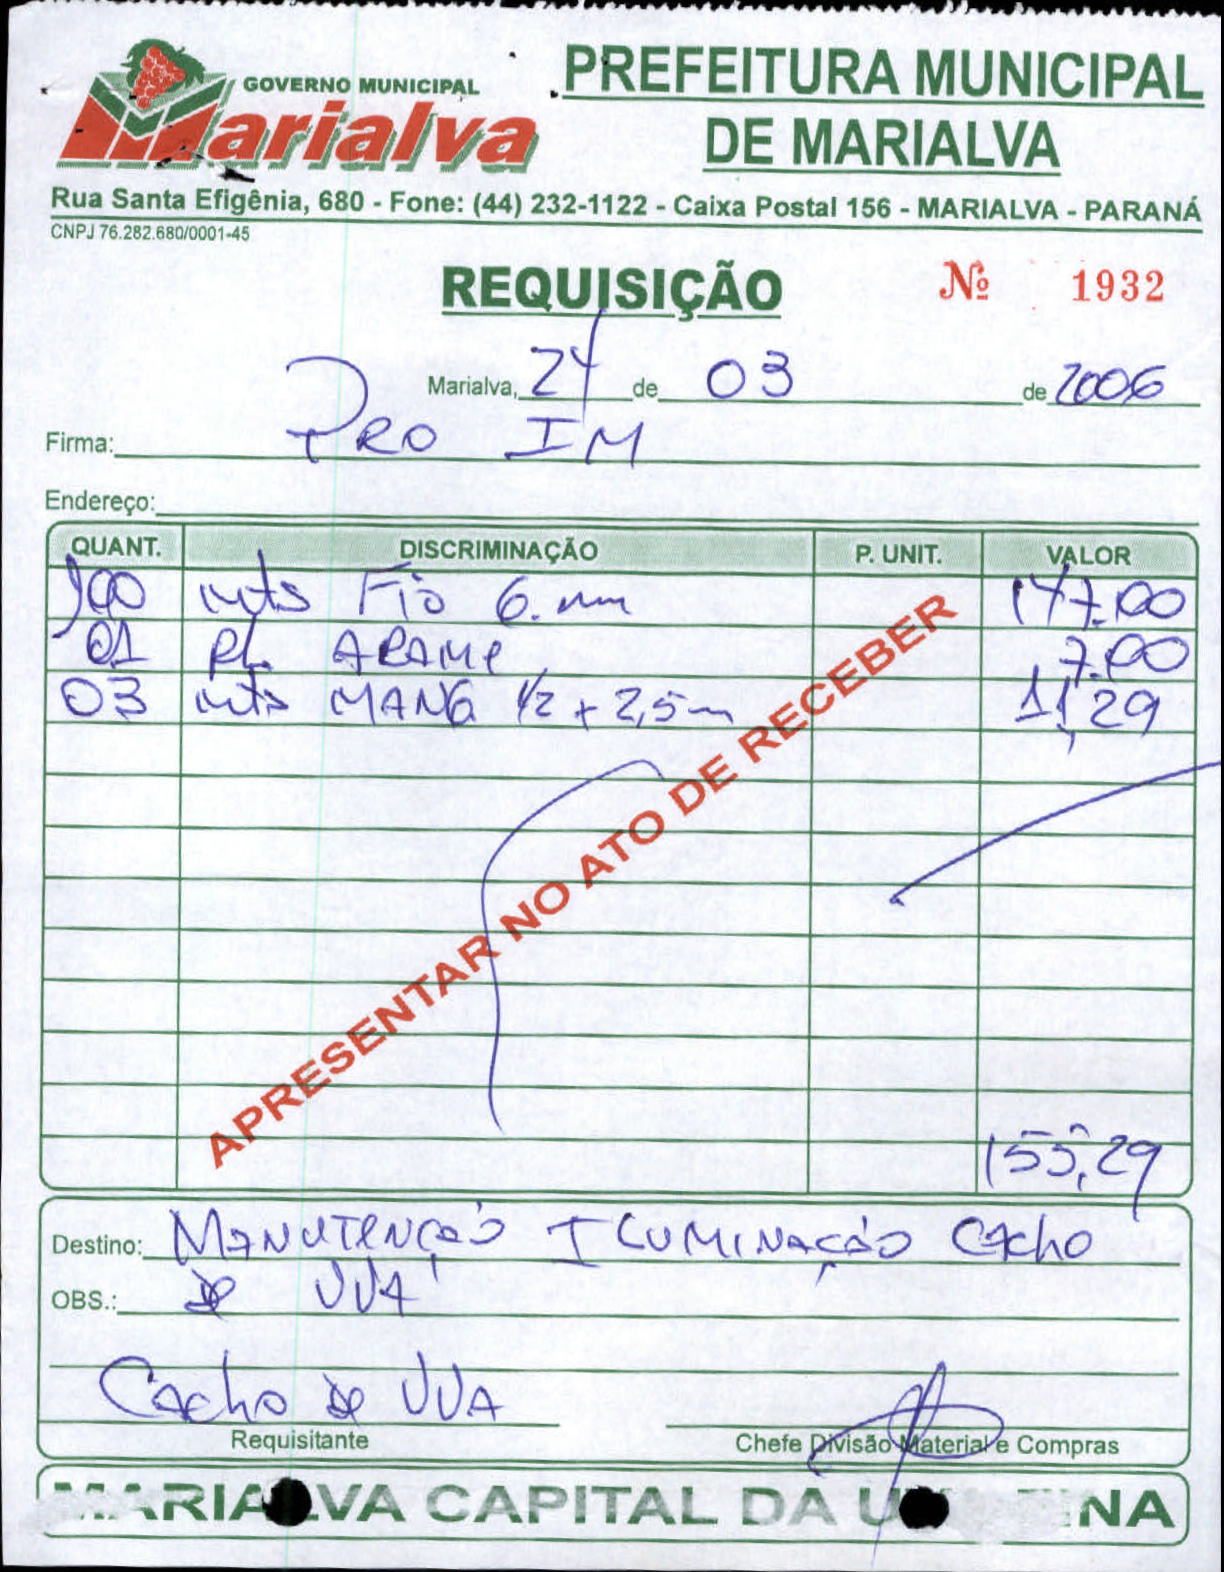 GOVERNO MUNICIPAL
Marialva
PREFEITURA MUNICIPAL
DE MARIALVA
Rua Santa Efigênia, 680 - Fone: (44) 232-1122 - Caixa Postal 156 - MARIALVA - PARANÁ
CNPJ 76.282.680/0001-45
REQUISIÇÃO
Nº 1932
Marialva, 24 de 03 de 2006
Firma: PRO IM
Endereço:
QUANT. DISCRIMINAÇÃO P. UNIT. VALOR
100 mts Fio 6. mm 147.00
01 RL ARAME 7.00
03 mts MANG 1/2 + 2,5m 11,29
APRESENTAR NO ATO DE RECEBER
155,29
Destino: MANUTENÇÃO ILUMINAÇÃO CACHO
OBS.: de UVA
Cacho de UVA
Requisitante
Chefe Divisão Material e Compras
MARIALVA CAPITAL DA